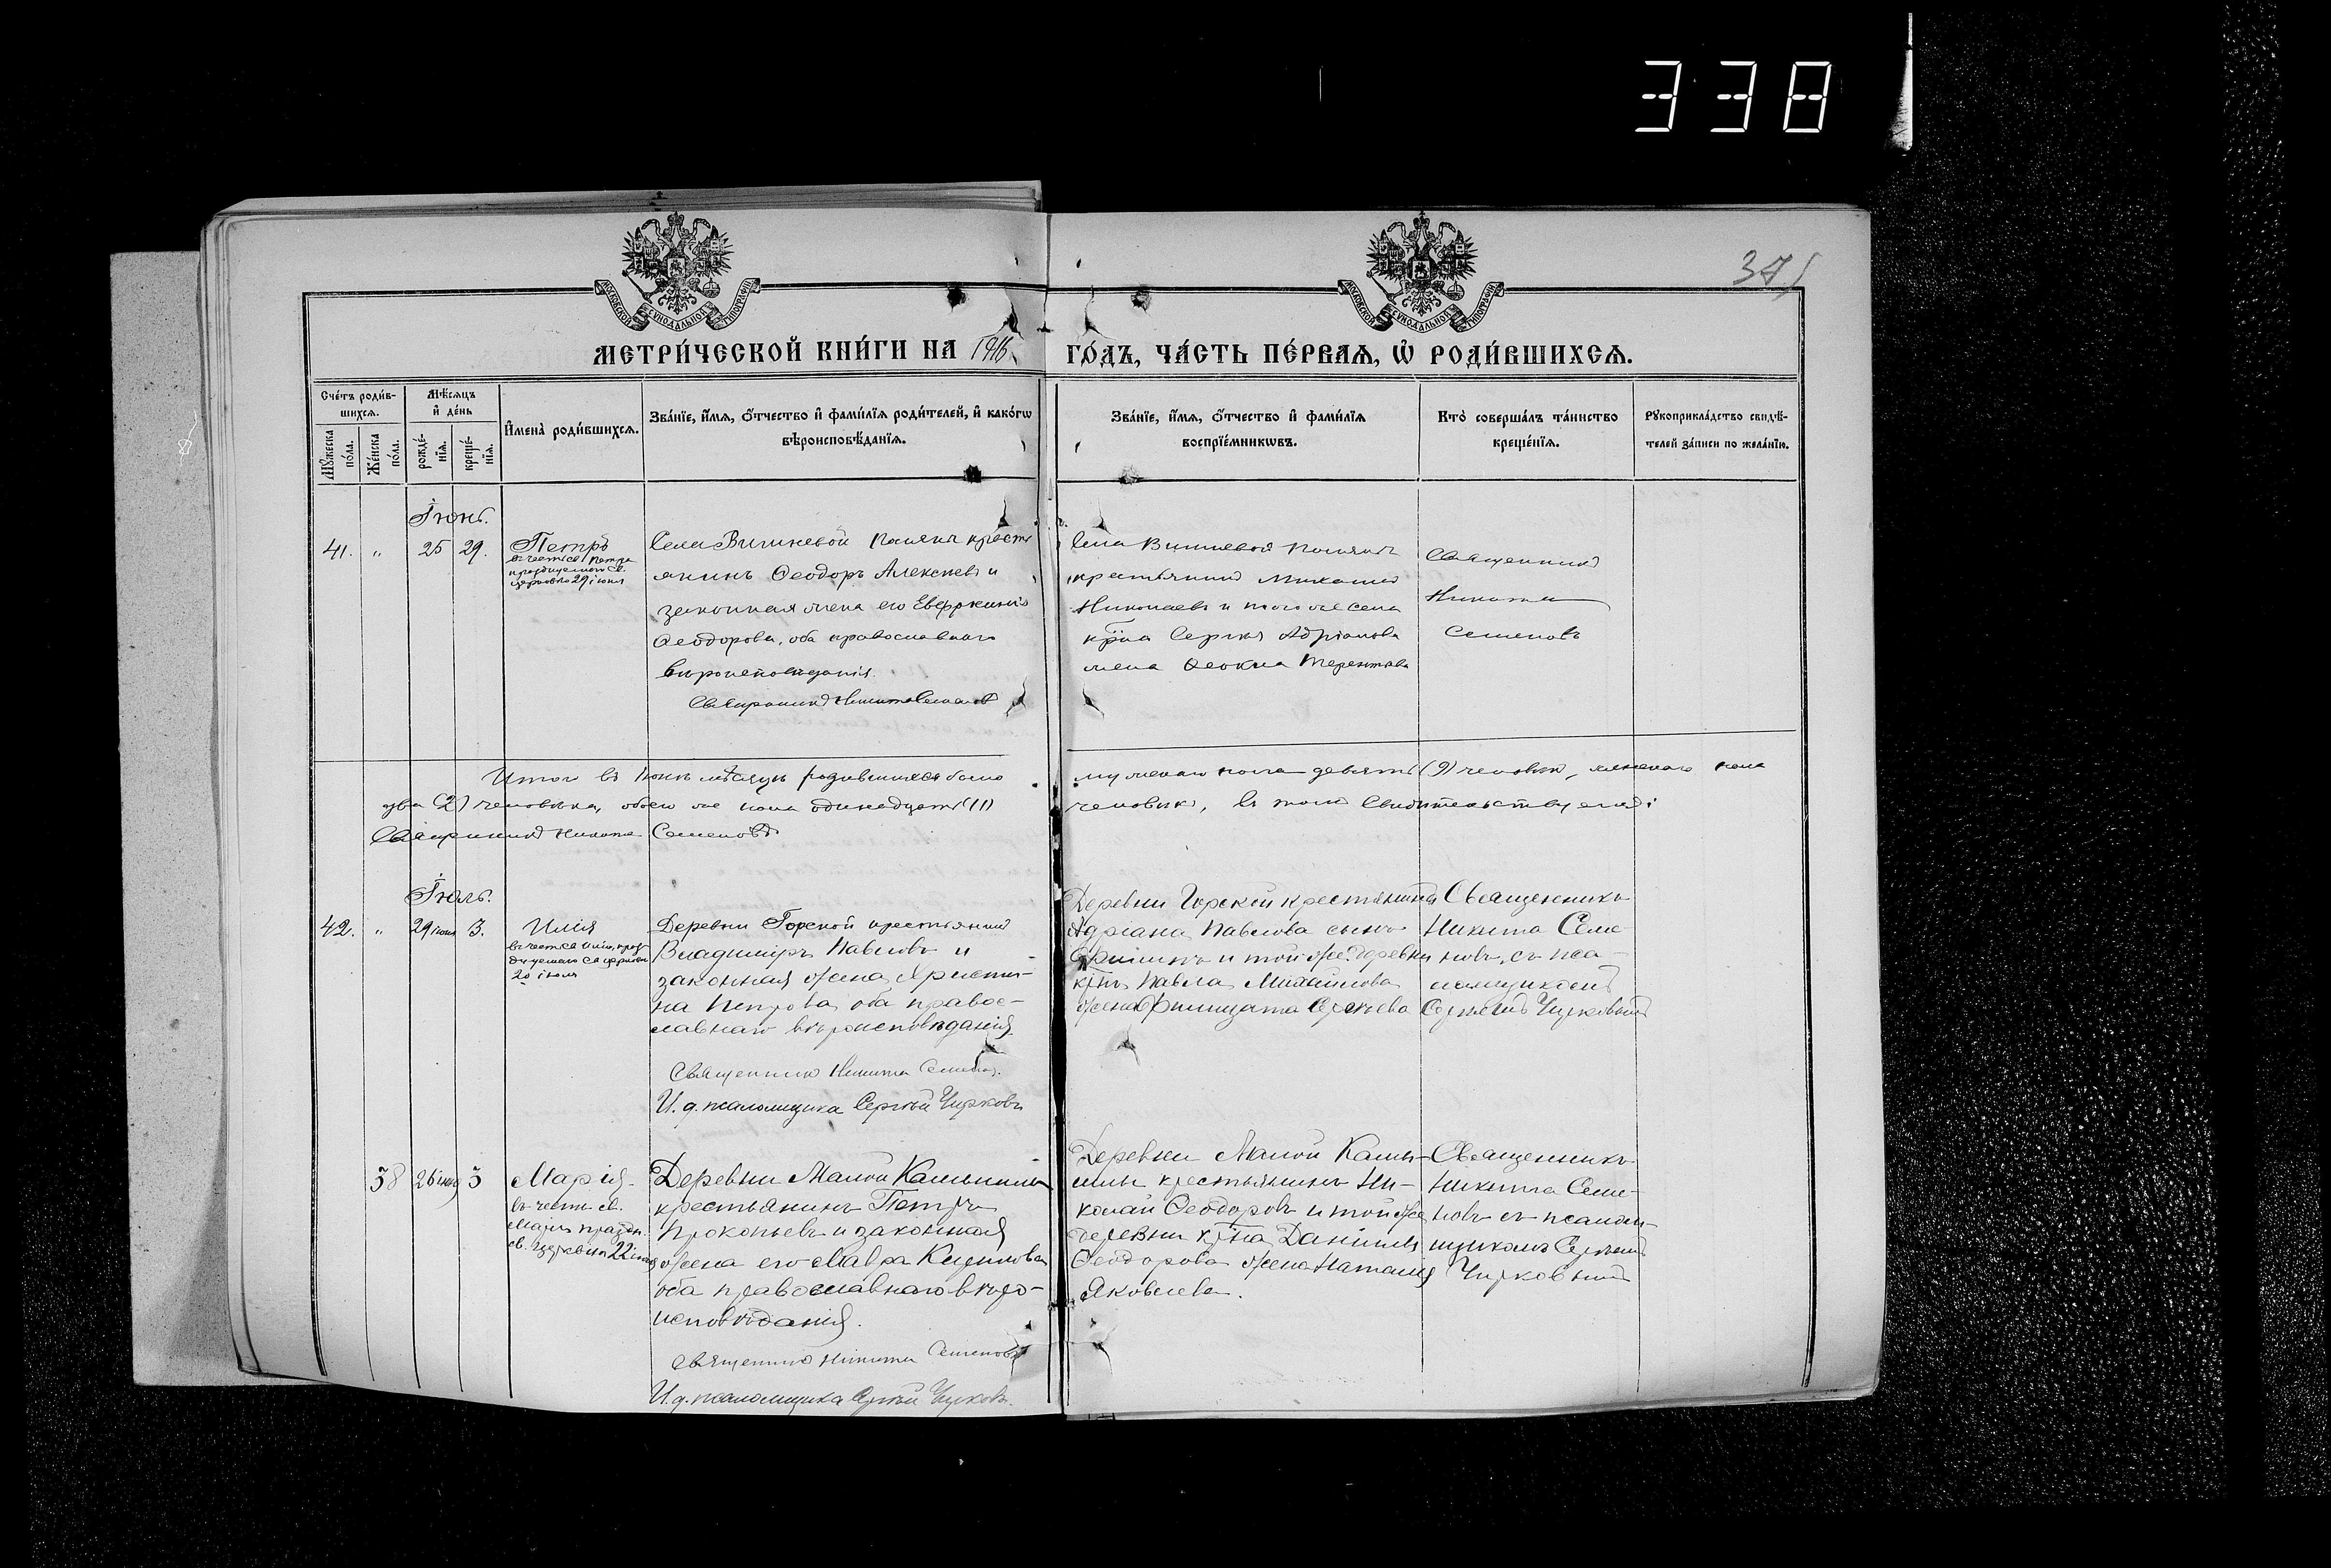 338
371
МОСКОВСКОЙ СѴНОДАЛЬНОЙ ТИПОГРАФІИ
МОСКОВСКОЙ СѴНОДАЛЬНОЙ ТИПОГРАФІИ
МЕТРИ́ЧЕСКОЙ КНИ́ГИ НА 1916
ГО́ДЪ, ЧА́СТЬ ПЕ́РВАѦ, Ѡ҆ РОДИ́ВШИХСѦ.
Сче́тъ роди́в-
шихсѧ.
Мꙋ́жеска
по́ла.
Же́нска
по́ла.
Мѣ́сѧцъ
и҆ де́нь
рожде́-
нїѧ.
креще́-
нїѧ.
И҆мена̀ роди́вшихсѧ.
Зва́нїе, и҆́мѧ, ѻ҆́тчество и҆ фами́лїѧ роди́телей, и҆ како́гѡ
вѣроисповѣ́данїѧ.
Зва́нїе, и҆́мѧ, ѻ҆́тчество и҆ фами́лїѧ
воспрїе́мникѡвъ.
Кто̀ соверша́лъ та́инство
креще́нїѧ.
Рꙋкоприкла́дство свидѣ́-
телей за́писи по жела́нїю.
Іюнь.
41. " 25 29. Петръ
въ честь св. Петра
празднуемаго св.
церковью 29 іюня
Села Вишневой Поляны кресть
янинъ Ѳеодоръ Алексѣевъ и
законная жена его Евфросинія
Ѳеодорова, оба православнаго
вѣроисповѣданія.
Священникъ Никита Семеновъ
Села Вишневой Поляны
крестьянинъ Михаилъ
Николаевъ и того же села
кр-на Сергія Адріанова
жена Ѳекла Терентьева
Священникъ
Никита
Семеновъ
Итого въ Іюнѣ мѣсяцѣ родившихся было
мужескаго пола девять (9) человѣкъ, женскаго пола
два (2) человѣка, обоего же пола одинадцать (11)
человѣкъ, въ томъ свидѣтельствуемъ:
Священникъ Никита Семеновъ
Іюль.
42. " 29 іюня 3. Илія
въ честь св. Иліи, праз
днуемаго св. церковью
20 іюля
Деревни Горской крестьянинъ
Владиміръ Павловъ и
законная жена Христи-
на Петрова, оба правос-
лавнаго вѣроисповѣданія.
Священникъ Никита Семеновъ.
И. д. псаломщика Сергѣй Чирковъ
Деревни Горской крестьянина
Адріана Павлова сынъ
и той же деревни
кр-нъ Павла Михайлова
жена Филицата Сергѣева
Священникъ
Никита Семе-
новъ, съ пса-
ломщикомъ
Сергѣемъ Чирковымъ
38 26 іюня 3 Марія
въ честь св.
Маріи праздн.
св. церковью 22 іюля
Деревни Малой Камышлы
крестьянинъ Петръ
Прокопьевъ и законная
жена его Мавра Кириллова
оба православнаго вѣро-
исповѣданія.
Священникъ Никита Семеновъ
И. д. псаломщика Сергѣй Чирковъ.
Деревни Малой Камы-
шлы крестьянинъ Ни-
колай Ѳеодоровъ и той же
деревни кр-на Даніила
Ѳеодорова жена Наталія
Яковлева.
Священникъ
Никита Семе-
новъ съ псалом-
щикомъ Сергѣемъ
Чирковымъ